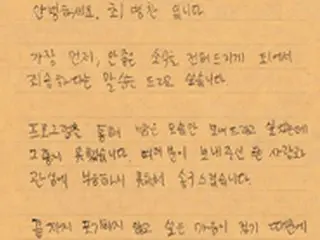 안녕하세요. 최병찬 입니다
가장 먼저, 안좋은 소식을 전해드리게 되어서
죄송하다는 말씀을 드리고 싶습니다.
프로그램을 통해 밝은 모습만 보여드리고 싶었는데
그렇지 못했습니다. 여러분이 보내주신 큰 사랑과
관심에 부응하지 못해서 송구스럽습니다.
끝까지 포기하지 않고 싶은 마음이 컸기 때문에